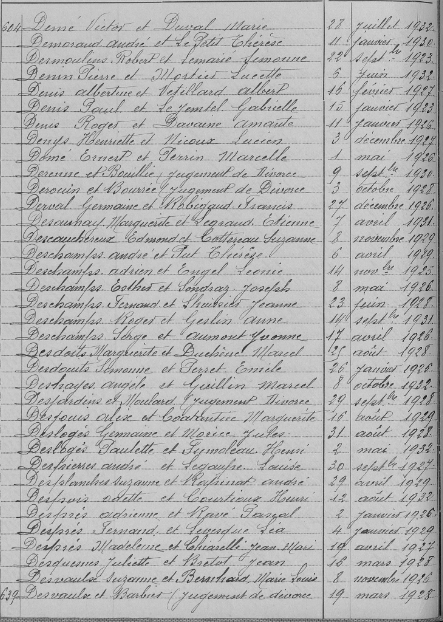 604 Demé Victor et Duval Marie 28 juillet 1932
Demorand André et Le Petit Thérèse 11 janvier 1930
Desmoulins Robert et Lemarie Simonne 22 septbre 1923
Denin Pierre et Mortier Lucette 6 juin 1932
Denis Albertine et Vesillard Albert 16 février 1927
Denis Paul et Gabrielle 15 janvier 1923
Denis Roger et Davaine Amante 11 janvier 1926
Denys Henriette et Nicoux Lucien 3 décembre 1927
Dome Ernest et Perrin Marcelle 1 mai 1926
Derenne et Bouillie, jugement de divorce 9 septbre 1920
Derouin et Bourrée Jugement de Divorce 3 octobre 1928
Derval Germaine et Francis 27 décembre 1926
Marguerite et Legrand Etienne 7 avril 1931
Descauchereux Edmond et Cottereau Suzanne 8 novembre 1929
Deschamps André et Put Thérèse 6 avril 1929
Deschamps Adrien et Engel Léonie 14 novbre 1925
Deschamps Esther et Joseph 8 mai 1926
Deschamps Fernand et Jeanne 23 juin 1928
Deschamps Roger et Geslin Anne septbre 1931
Deschamps Serge et Aumont Yvonne 17 avril 1926
Marguerite et Duchêne Marcel 25 août 1928
Simonne et Perret Emile 26 janvier 1926
Deshayes Angèle et Guillin Marcel 8 octobre 1932
Desjardins et Moutard, Jugement Divorce 29 septbre 1928
Desjouis Alix et Marguerite 16 août 1929
Desloges Germaine et Morice Jules 31 août 1928
Desloges Paulette et Henri 2 mai 1932
Despierres André et Louise 30 septbre 1927
Suzanne et André 29 avril 1929
Odette et Courtioux Henri 12 août 1932
Després Adrienne et Ravé Pascal 2 janvier 1926
Després Fernand et Levesque Lia 4 janvier 1929
Després Madeleine et Chiarelli Jean Mari 19 avril 1927
Desquesnes Juliette et Bretot Jean 16 mars 1928
Desvaulx Suzanne et Bernhard Marie Louis 8 novembre 1926
639 Desvaulx et Barbier (jugement de divorce 19 mars 1928